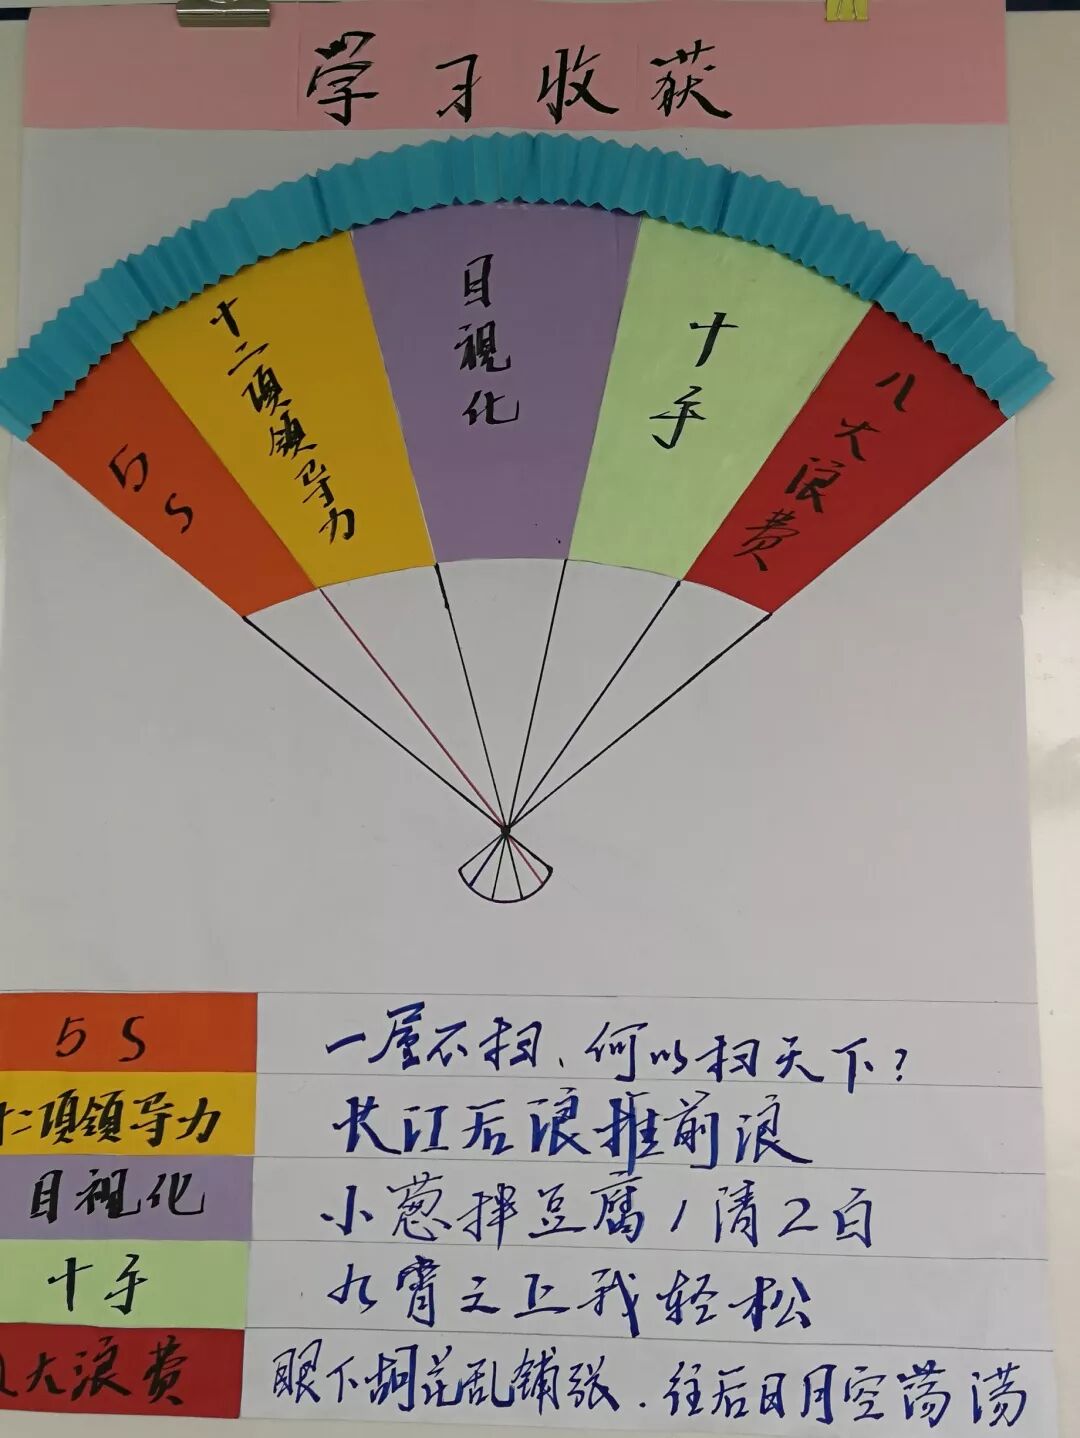 学习收获
5S
十二項領导力
目視化
十手
八大浪费
5S
一屋不扫、何以扫天下?
十二項領导力
长江后浪推前浪
目視化
小葱拌豆腐1清2白
十手
九霄之上我轻松
八大浪费
眼下胡花乱铺张.往后日月空荡荡